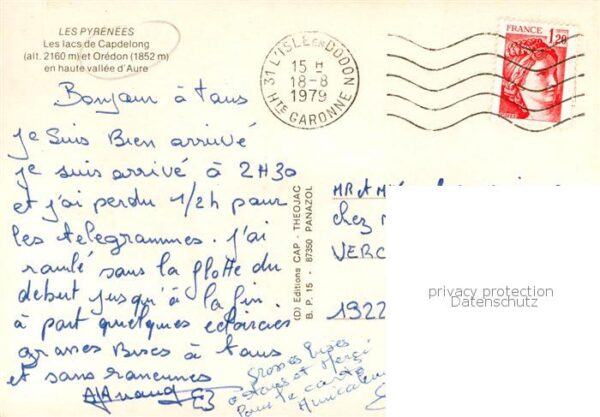 LES PYRÉNÉES
Les lacs de Capdelong
(alt. 2160 m) et Orédon (1852 m)
en haute vallée d'Aure
31 L'ISLE EN DODON
15 H
18-8
1979
HTE GARONNE
FRANCE 1,20
Bonjour à tous
je suis Bien arrivé
je suis arrivé à 2H30
et j'ai perdu 1/2h pour
les telegrammes. j'ai
roulé sous la flotte du
debut jusqu'à la fin
à part quelques eclaircies
grosses Bises à tous
et sans rancunes
grosses bises
à tous et Merçi
Pour la carte
(D) Editions CAP - THEOJAC
B. P. 15 - 87350 PANAZOL
MR et
chez
VERC
1922
privacy protection
Datenschutz